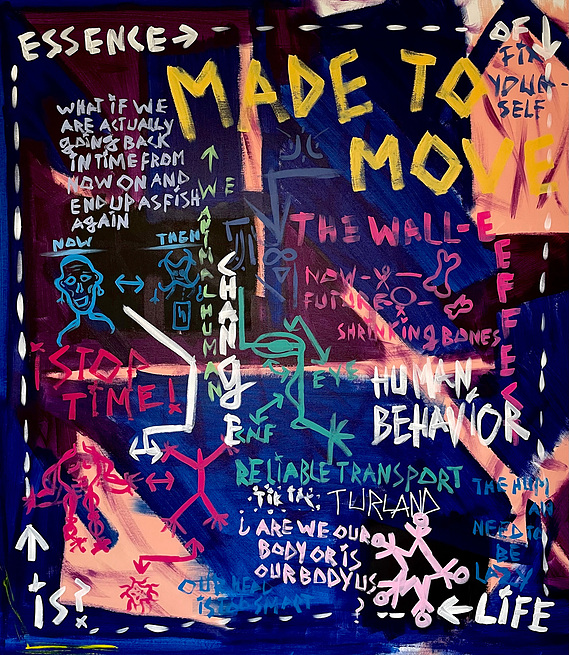 ESSENCE →
OF
MADE TO
MOVE
FIX
YOUR-
SELF
WHAT IF WE
ARE ACTUALLY
gOiNg BACK
IN TIME FROM
NOW ON AND
END UP AS FISH
AgAIN
NOW
THEN
WE ANIMAL HUMAN
CHANgE
THE WALL-E
EFFECT
NOW-
FUTURE
SHRINKINg BONES
¡STOP
TIME!
EYE
HUMAN
BEHAVIOR
RELIABLE TRANSPORT
TURLAND
¿ ARE WE OUR
BODY OR IS
OUR BODY US
?
NEED TO
BE
LAZY
IS?
← LiFE